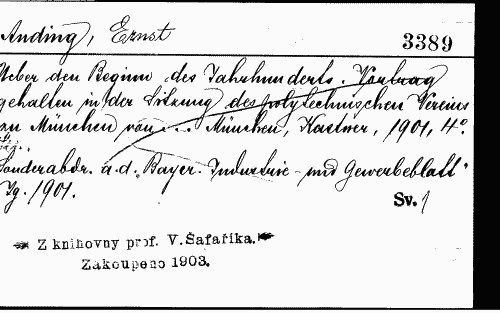 Anding, Ernst
3389
Ueber den Beginn des Jahrhunderts. Vortrag
gehalten in der Sitzung des polytechnischen Vereins
zu München von ... München, Kastner, 1901, 4°.
Sonderabdr. a. d. "Bayer. Industrie- und Gewerbeblatt"
Jg. 1901.
Sv. 1
Z knihovny prof. V. Šafaříka.
Zakoupeno 1903.